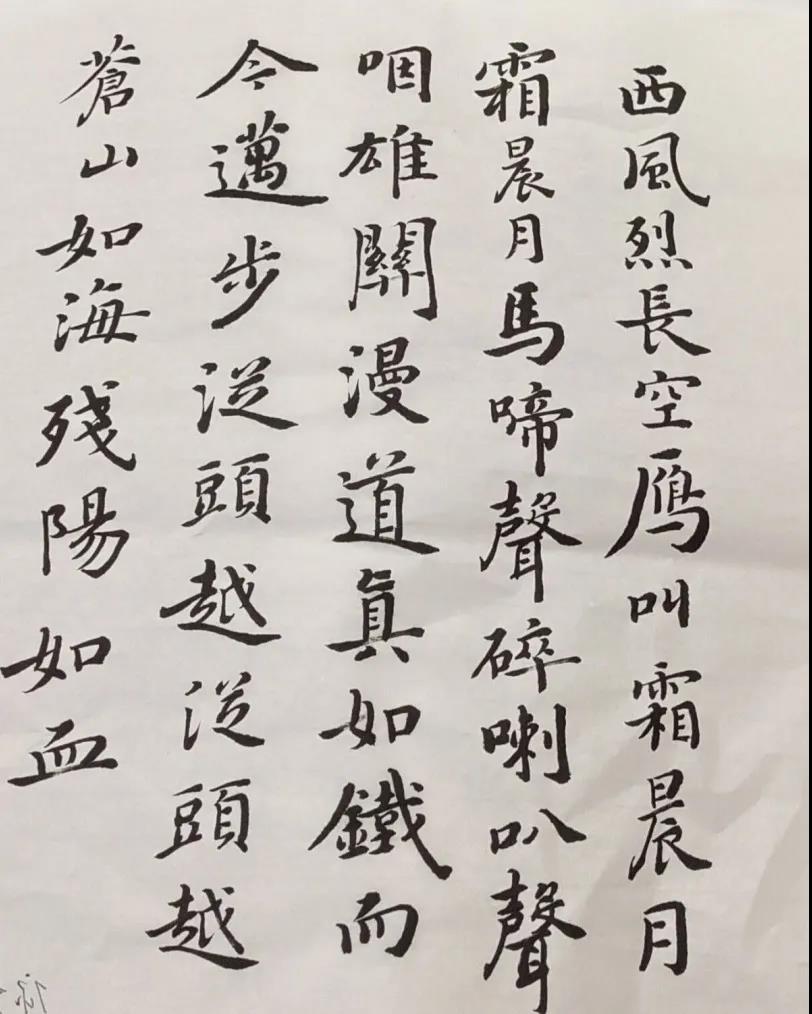 西風烈長空鴈叫霜晨月
霜晨月馬啼聲碎喇叭聲
咽雄關漫道真如鐵而
今邁步從頭越從頭越
蒼山如海殘陽如血